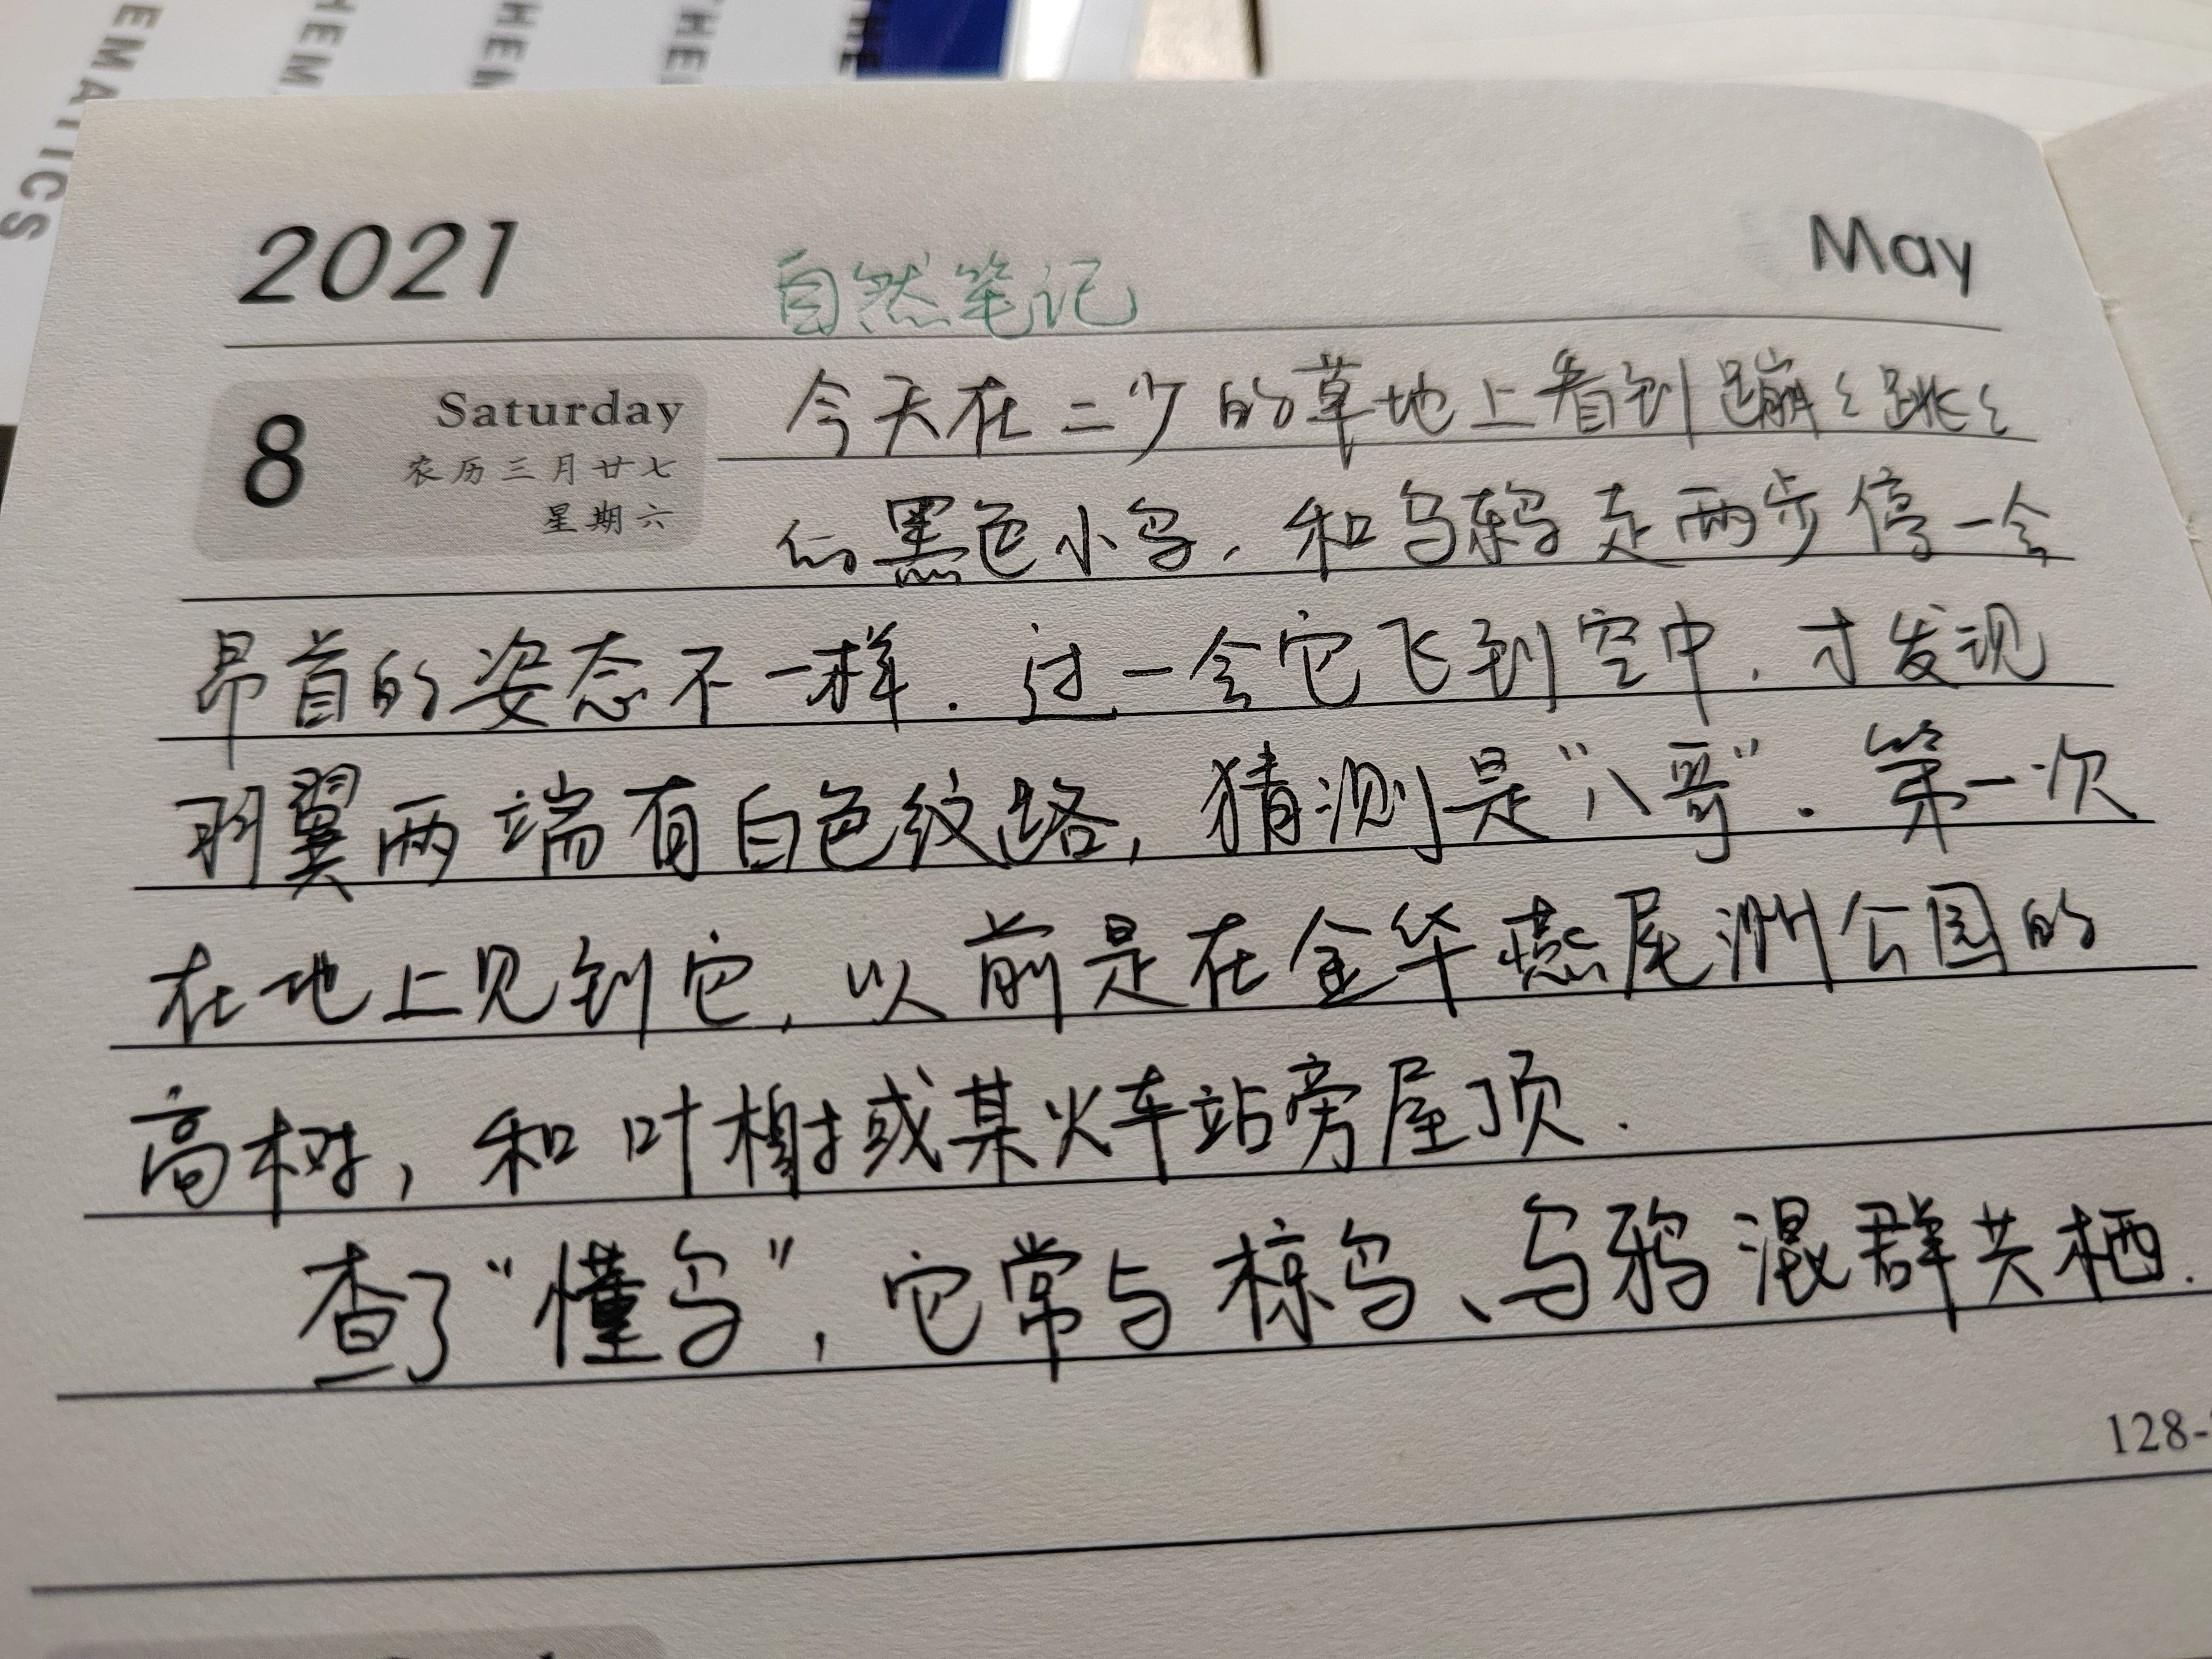 EMATICS
HEM
HEM
THE
THE
2021
May
自然笔记
8
Saturday
农历三月廿七
星期六
今天在二少的草地上看到蹦々跳々
的黑色小鸟，和乌鸦走两步停一会
昂首的姿态不一样．过一会它飞到空中．才发现
羽翼两端有白色纹路，猜测是“八哥”．第一次
在地上见到它，以前是在金华燕尾洲公园的
高树，和叶榭或某火车站旁屋顶．
查了“懂鸟”，它常与椋鸟、乌鸦混群共栖．
128-